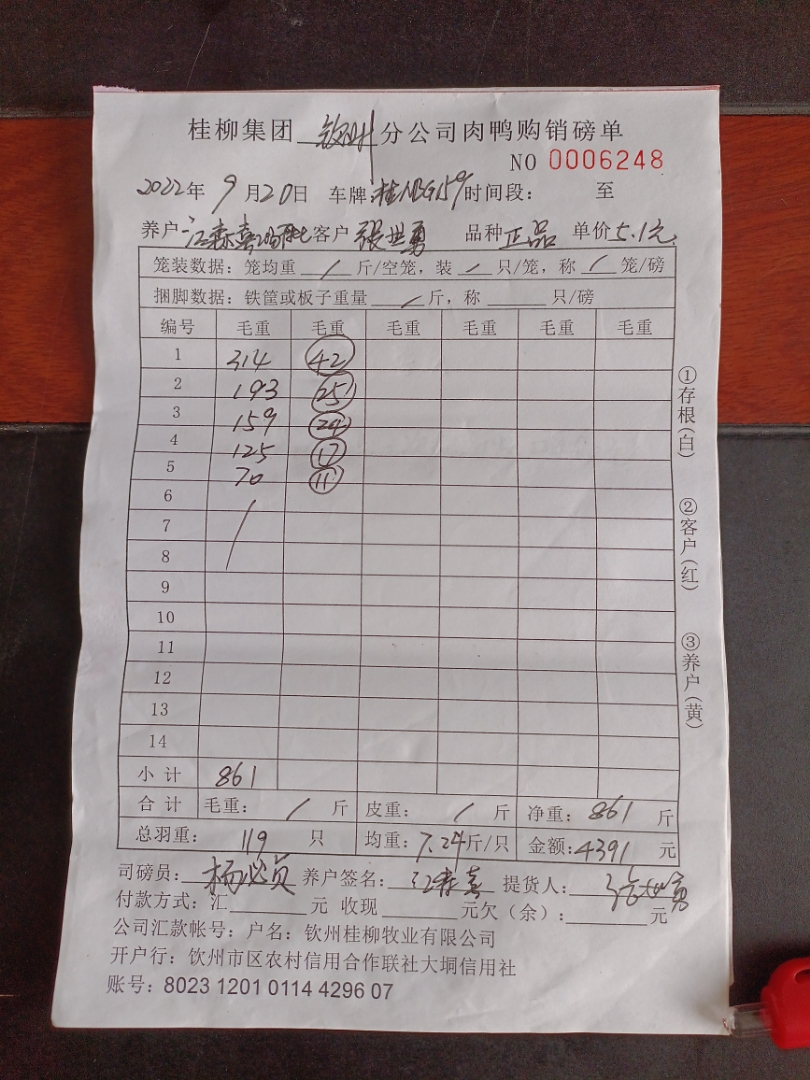 桂柳集团 钦州 分公司肉鸭购销磅单
NO 0006248
2022年 9月20日 车牌: 桂NBG159 时间段: 至
养户: 江森喜 客户 张世勇 品种 正品 单价 5.1元
笼装数据: 笼均重 / 斤/空笼, 装 / 只/笼, 称 / 笼/磅
捆脚数据: 铁筐或板子重量 / 斤, 称 只/磅
编号 毛重 毛重 毛重 毛重 毛重 毛重
1 314 42
2 193 25
3 159 24
4 125 17
5 70 11
6
7
8
9
10
11
12
13
14
小计 861
合计 毛重: / 斤 皮重: / 斤 净重: 861 斤
总羽重: 119 只 均重: 7.24斤/只 金额: 4391 元
司磅员: 杨必贞 养户签名: 江森喜 提货人: 张世勇
付款方式: 汇 元 收现 元欠(余): 元
公司汇款帐号: 户名: 钦州桂柳牧业有限公司
开户行: 钦州市区农村信用合作联社大垌信用社
账号: 8023 1201 0114 4296 07
①存根(白)
②客户(红)
③养户(黄)